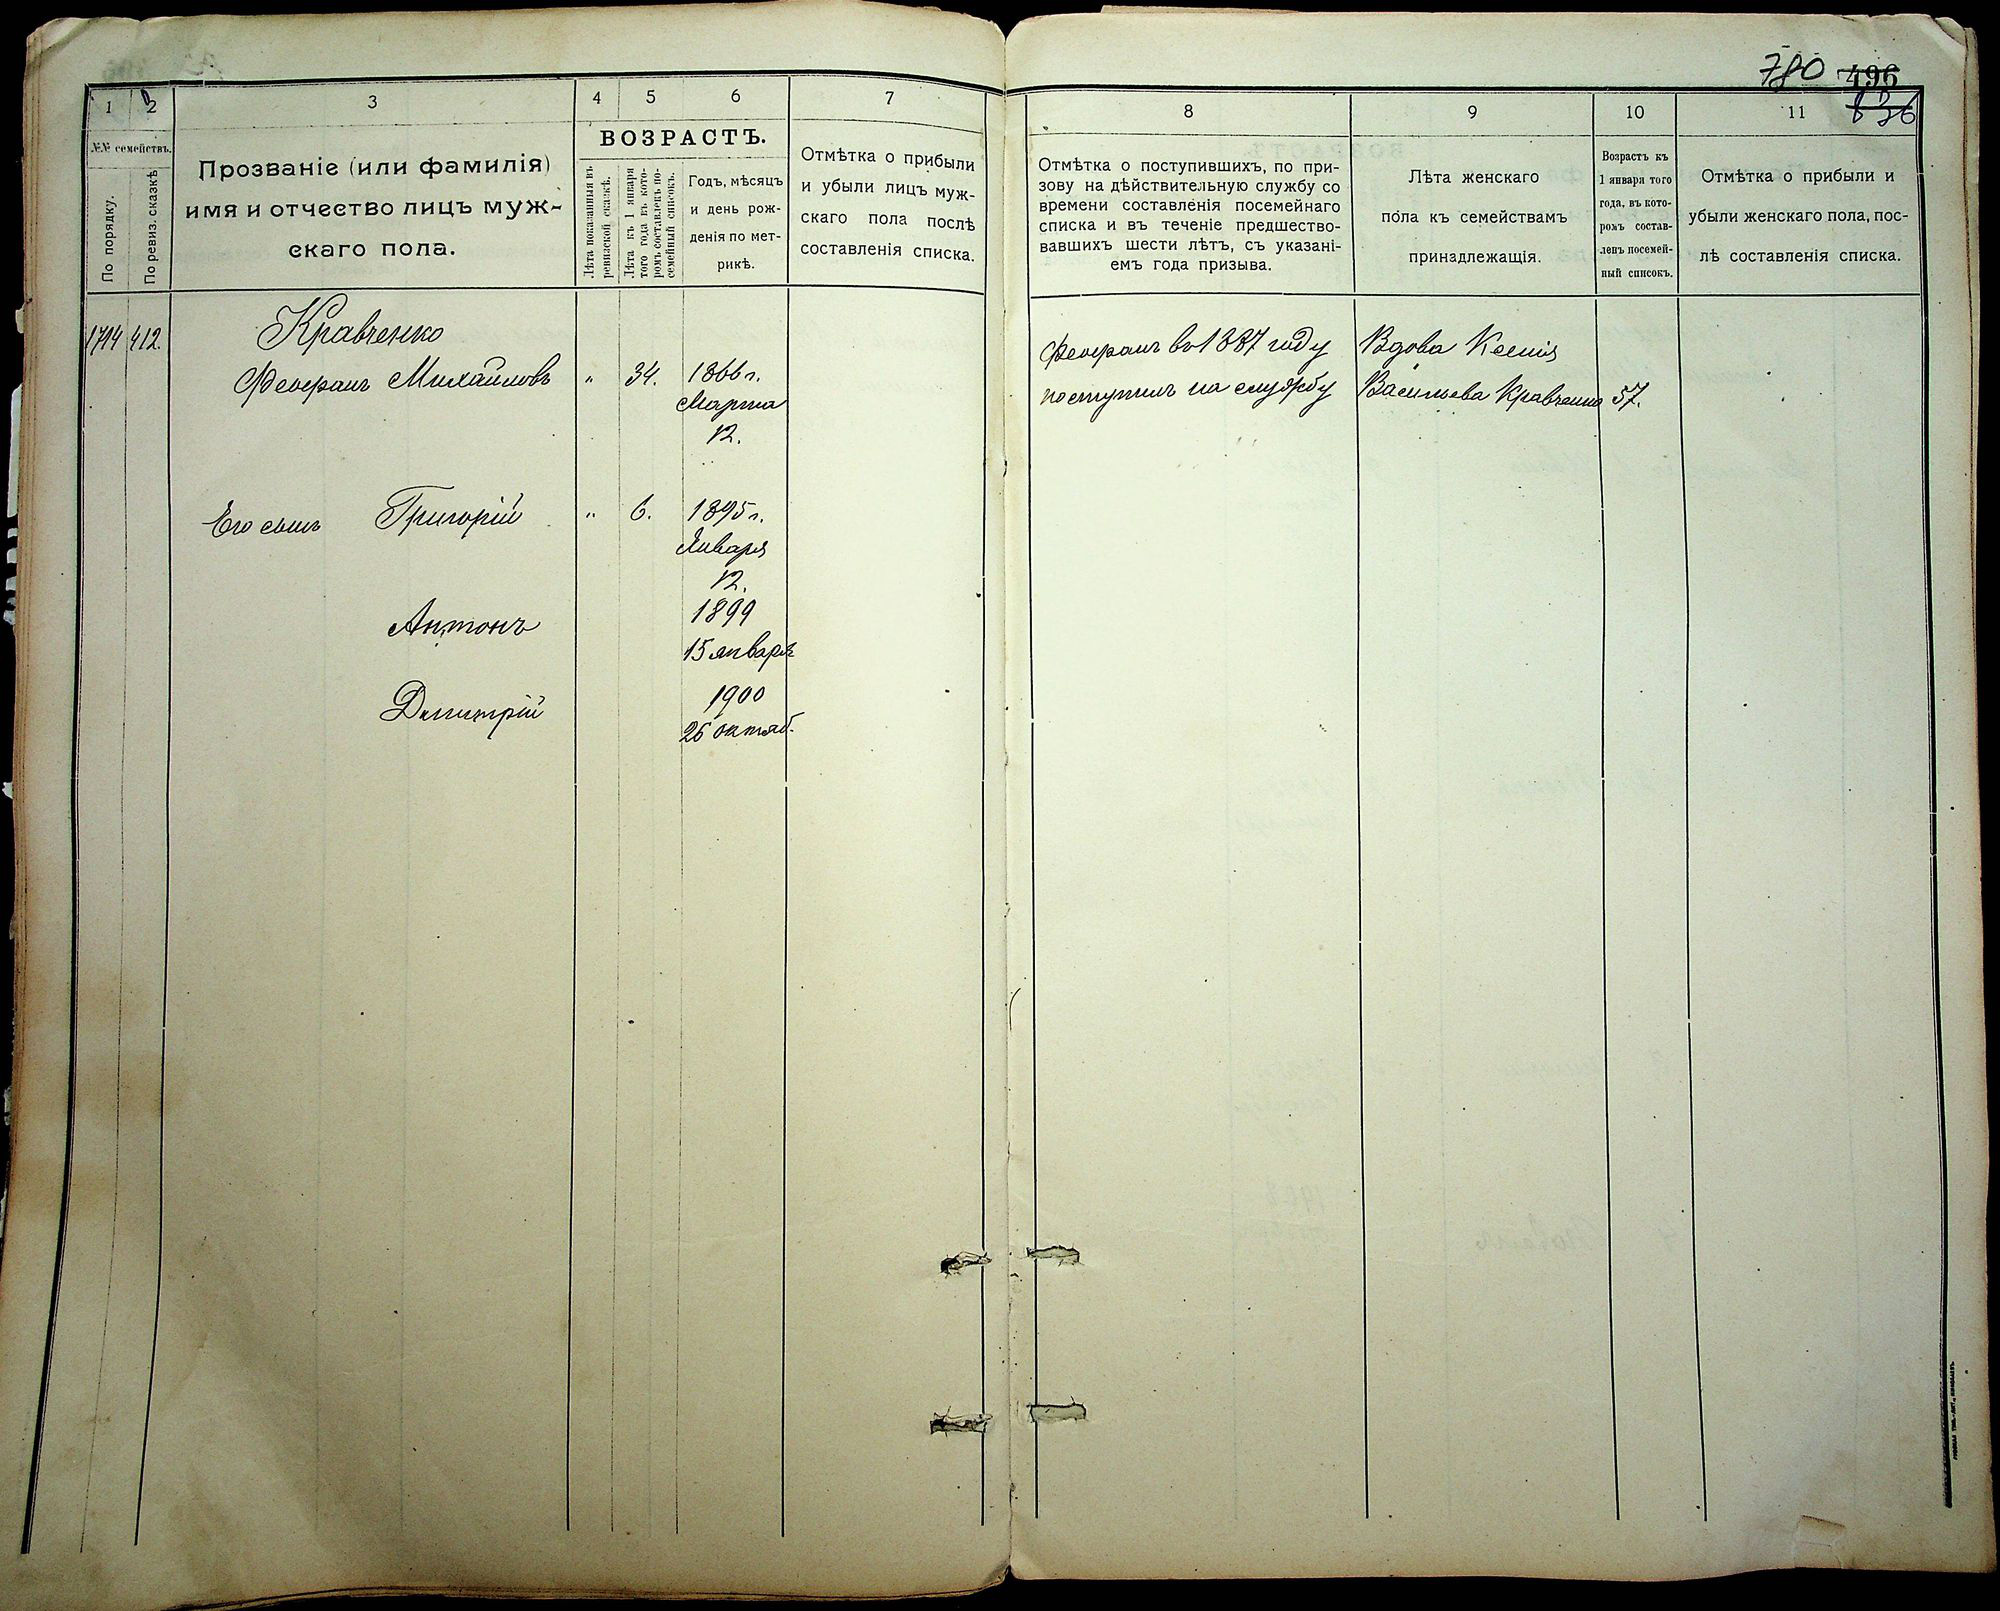 780 496
836
1 2 3 4 5 6 7
№№ семействъ.
По порядку.
По ревиз. сказкѣ
Прозваніе (или фамилія)
имя и отчество лицъ муж-
скаго пола.
ВОЗРАСТЪ.
Лѣта показанныя въ
ревизской сказкѣ.
Лѣта къ 1 января
того года въ кото-
ромъ составленъ по-
семейный списокъ.
Годъ, мѣсяцъ
и день рож-
денія по мет-
рикѣ.
Отмѣтка о прибыли
и убыли лицъ муж-
скаго пола послѣ
составленія списка.
8 9 10 11
Отмѣтка о поступившихъ, по при-
зову на дѣйствительную службу со
времени составленія посемейнаго
списка и въ теченіе предшество-
вавшихъ шести лѣтъ, съ указані-
емъ года призыва.
Лѣта женскаго
пола къ семействамъ
принадлежащія.
Возрастъ къ
1 января того
года, въ кото-
ромъ состав-
ленъ посемей-
ный списокъ.
Отмѣтка о прибыли и
убыли женскаго пола, пос-
лѣ составленія списка.
1714 412. Кравченко
Феофанъ Михайловъ " 34. 1866 г.
Марта
12.
Его сынъ Григорій " 6. 1895 г.
Января
12.
Антонъ 1899
15 января
Димитрій 1900
26 октяб.
Феофанъ въ 1887 году
поступилъ на службу
Вдова Ксенія
Васильева Кравченко 57.